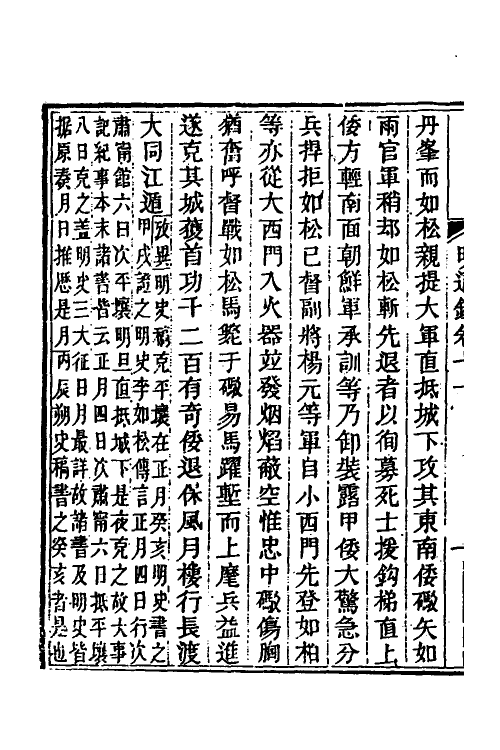 丹峯而如松親提大軍直抵城下攻其東南倭礮矢如
雨官軍稍却如松斬先退者以徇募死士援鈎梯直上
倭方輕南面朝鮮軍承訓等乃卸裝露甲倭大驚急分
兵捍拒如松已督副將楊元等軍自小西門先登如柏
等亦從大西門入火器竝發烟焰蔽空惟忠中礮傷胸
猶奮呼督戰如松馬斃于礮易馬躍塹而上麾兵益進
遂克其城獲首功千二百有奇倭退保風月樓行長渡
大同江遁
攷異明史稿克平壤在正月癸亥明史書之
甲戌證之明史李如松傳言正月四日行次
肅甯館六日次平壤明旦直抵城下是夜克之故大事
記紀事本末諸書皆云正月四日次肅甯六日抵平壤
八日克之蓋明史三大征日月最詳故諸書及明史皆
据原奏月日推歷是月丙辰朔史稿書之癸亥者是也